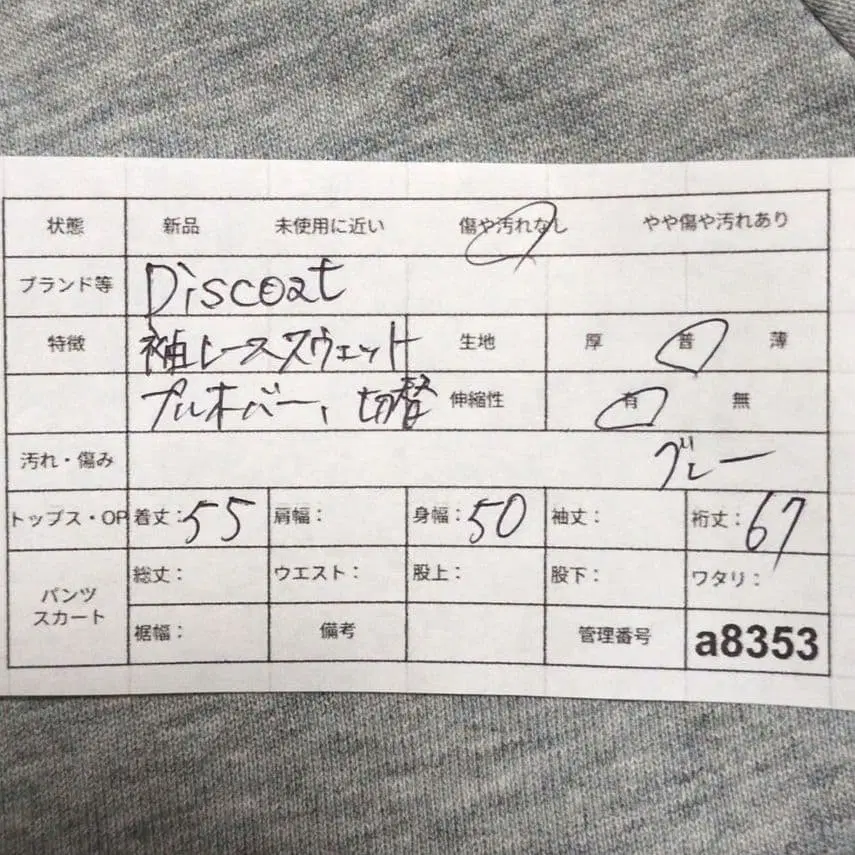 状態 新品 未使用に近い 傷や汚れなし やや傷や汚れあり
ブランド等 Discoat
特徴 袖レーススウェット 生地 厚 普 薄
プルオーバー、切替 伸縮性 有 無
汚れ・傷み グレー
トップス・OP 着丈: 55 肩幅: 身幅: 50 袖丈: 裄丈: 67
パンツ スカート 総丈: ウエスト: 股上: 股下: ワタリ:
裾幅: 備考 管理番号 a8353